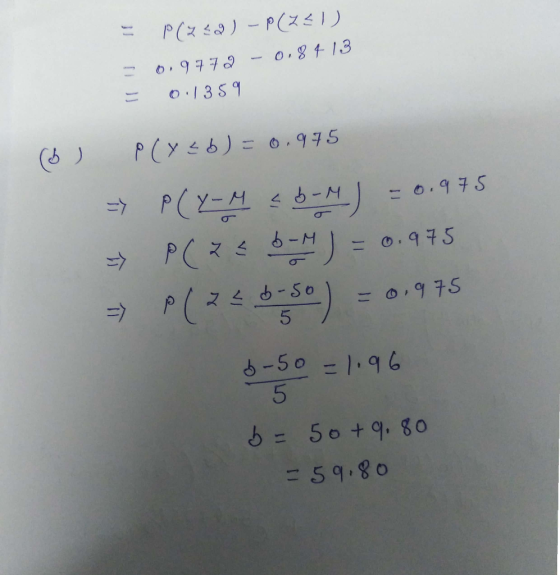 = P(Z≤2) - P(Z≤1)
= 0.9772 - 0.8413
= 0.1359
(b) P(Y≤b) = 0.975
⇒ P((Y-M)/σ ≤ (b-M)/σ) = 0.975
⇒ P(Z ≤ (b-M)/σ) = 0.975
⇒ P(Z ≤ (b-50)/5) = 0.975
(b-50)/5 = 1.96
b = 50+9.80
= 59.80